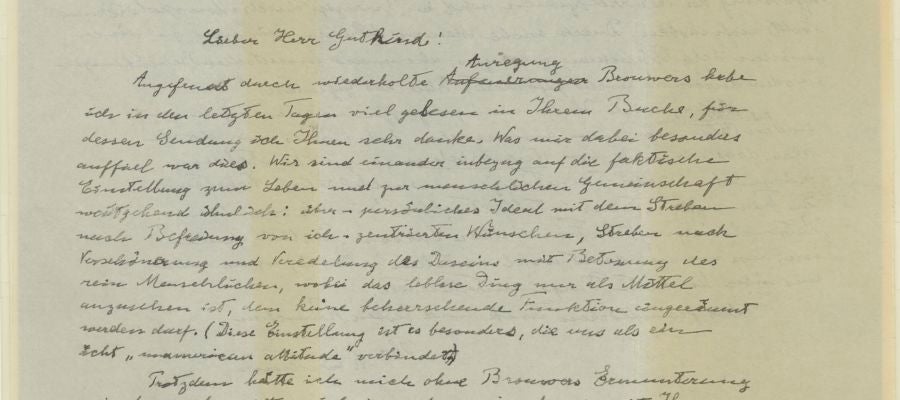 Lieber Herr Gutkind!
Anregung
Angefeuert durch wiederholte Aufmunterungen Brouwers habe
ich in den letzten Tagen viel gelesen in Ihrem Buche, für
dessen Sendung ich Ihnen sehr danke. Was mir dabei besonders
auffiel war dies. Wir sind einander inbezug auf die faktische
Einstellung zum Leben und zur menschlichen Gemeinschaft
weitgehend ähnlich: über-persönliches Ideal mit dem Streben
nach Befreiung von ich-zentrierten Wünschen, Streben nach
Verschönerung und Veredelung des Daseins mit Betonung des
rein Menschlichen, wobei das leblose Ding nur als Mittel
anzusehen ist, dem keine beherrschende Funktion eingeräumt
werden darf. (Diese Einstellung ist es besonders, die uns als ein
echt „unamerican attitude" verbindet)
Trotzdem hätte ich mich ohne Brouwers Ermunterung